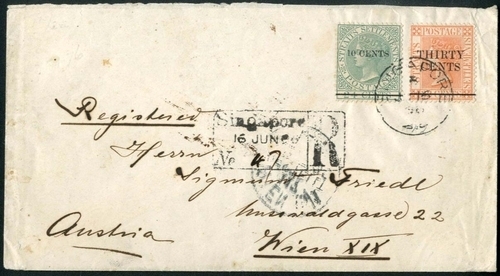 STRAITS SETTLEMENTS
10 CENTS
POSTAGE
THIRTY
CENTS
SINGAPORE
Registered
Singapore
16 JUN
No 47
R
Herrn
Sigmund Friedl
22
Austria
Wien XIX